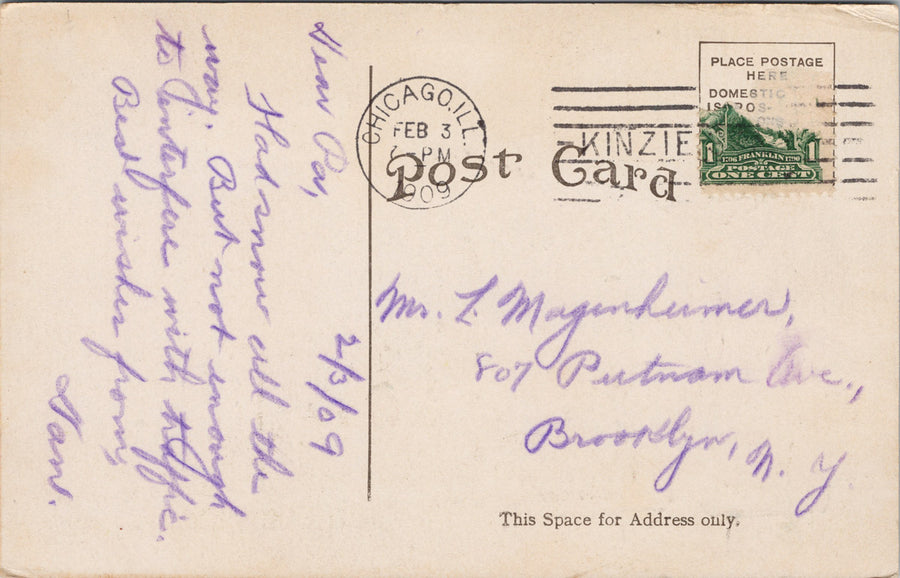 2/3/09
Dear Pa,
Had snow all the
way. But not enough
to interfere with traffic.
Best wishes from,
Sam.
CHICAGO, ILL.
FEB 3
PM
1909
KINZIE
PLACE POSTAGE
HERE
DOMESTIC
1706 FRANKLIN 1790
1 POSTAGE 1
ONE CENT
Post Card
Mr. L. Magenheimer,
807 Putnam Ave.,
Brooklyn, N. Y.
This Space for Address only.